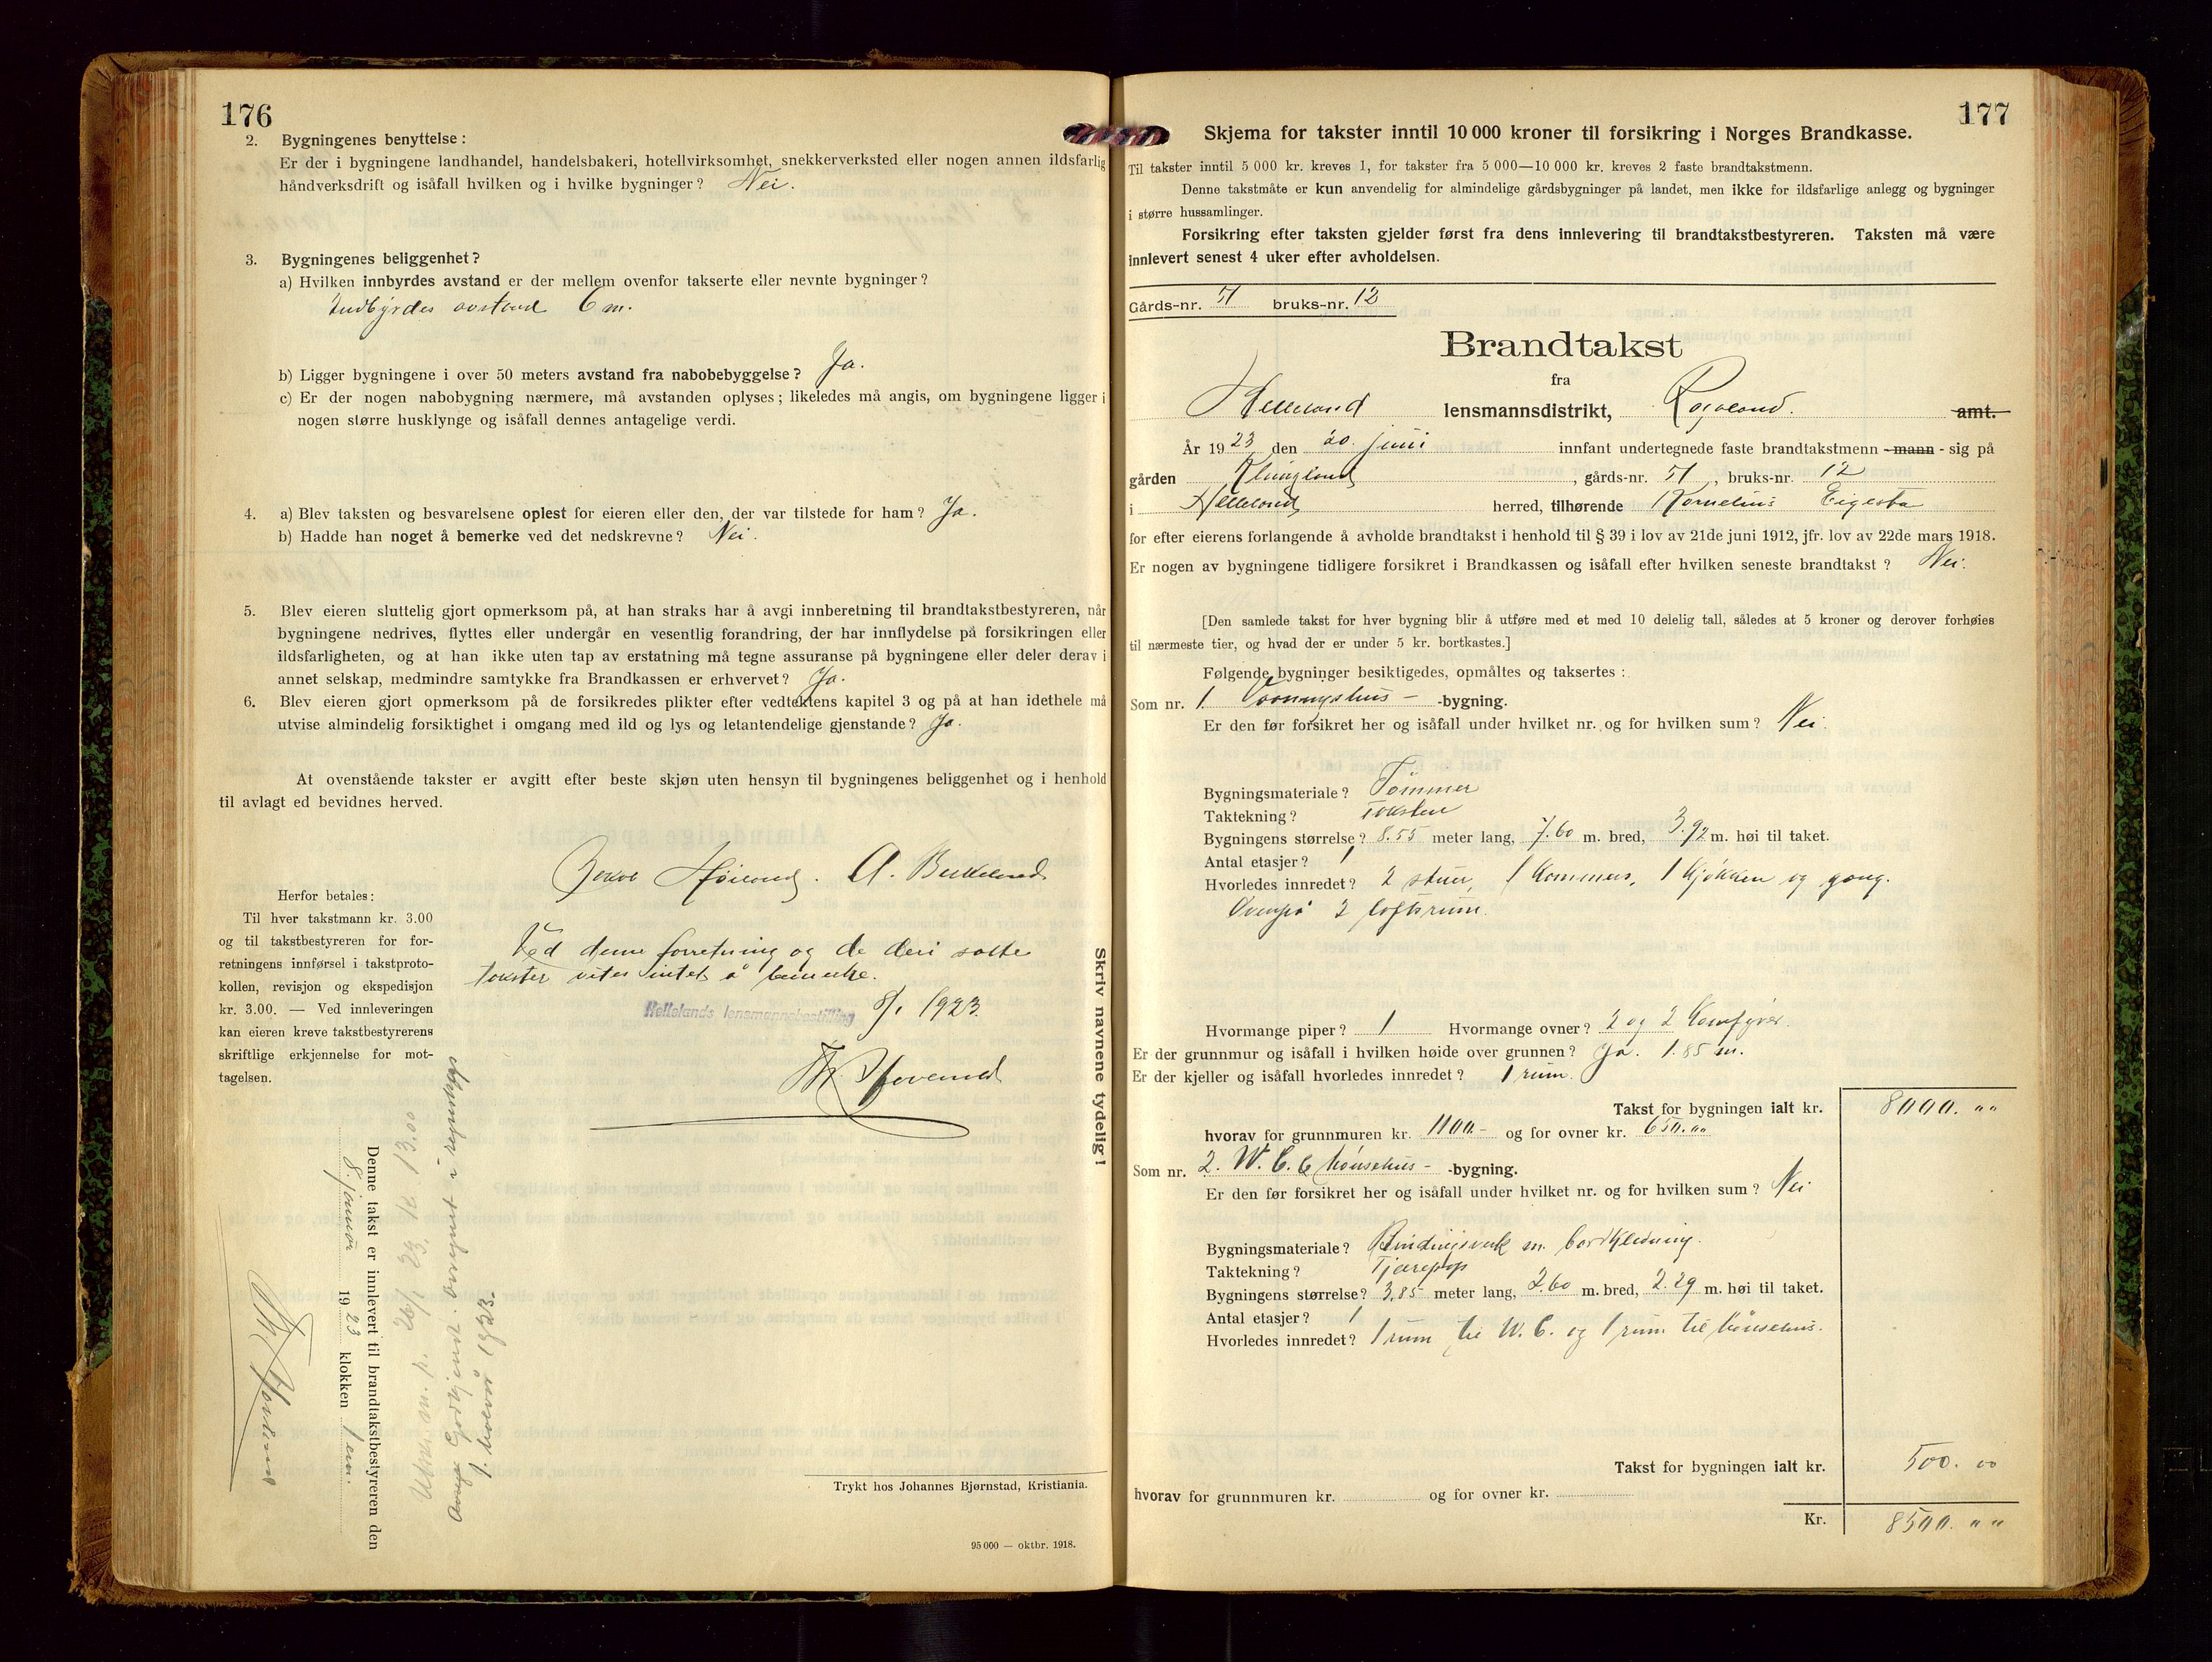 176
2. Bygningenes benyttelse:
Er der i bygningene landhandel, handelsbakeri, hotellvirksomhet, snekkerverksted eller nogen annen ildsfarlig
håndverksdrift og isåfall hvilken og i hvilke bygninger? Nei.
3. Bygningenes beliggenhet?
a) Hvilken innbyrdes avstand er der mellem ovenfor takserte eller nevnte bygninger?
Indbyrdes avstand 6 m.
b) Ligger bygningene i over 50 meters avstand fra nabobebyggelse? Ja.
c) Er der nogen nabobygning nærmere, må avstanden oplyses; likeledes må angis, om bygningene ligger i
nogen større husklynge og isåfall dennes antagelige verdi.
4. a) Blev taksten og besvarelsene oplest for eieren eller den, der var tilstede for ham? Ja.
b) Hadde han noget å bemerke ved det nedskrevne? Nei.
5. Blev eieren sluttelig gjort opmerksom på, at han straks har å avgi innberetning til brandtakstbestyreren, når
bygningene nedrives, flyttes eller undergår en vesentlig forandring, der har innflydelse på forsikringen eller
ildsfarligheten, og at han ikke uten tap av erstatning må tegne assuranse på bygningene eller deler derav i
annet selskap, medmindre samtykke fra Brandkassen er erhvervet? Ja.
6. Blev eieren gjort opmerksom på de forsikredes plikter efter vedtektens kapitel 3 og på at han idethele må
utvise almindelig forsiktighet i omgang med ild og lys og letantendelige gjenstande? Ja.
At ovenstående takster er avgitt efter beste skjøn uten hensyn til bygningenes beliggenhet og i henhold
til avlagt ed bevidnes herved.
A. Birkeland
Herfor betales:
Til hver takstmann kr. 3.00
og til takstbestyreren for for-
retningens innførsel i takstproto-
kollen, revisjon og ekspedisjon
kr. 3.00. — Ved innleveringen
kan eieren kreve takstbestyrerens
skriftlige erkjennelse for mot-
tagelsen.
Ved denne forretning og de deri satte
takster vites intet å bemerke.
Hellelands lensmannsbestilling 8/1 1923.
Skriv navnene tydelig!
Denne takst er innlevert til brandtakstbestyreren den
8. januar 1923 klokken 1 em.
26/1 23, kr. 13.00
1923.
Trykt hos Johannes Bjørnstad, Kristiania.
95 000 — oktbr. 1918.
177
Skjema for takster inntil 10 000 kroner til forsikring i Norges Brandkasse.
Til takster inntil 5 000 kr. kreves 1, for takster fra 5 000—10 000 kr. kreves 2 faste brandtakstmenn.
Denne takstmåte er kun anvendelig for almindelige gårdsbygninger på landet, men ikke for ildsfarlige anlegg og bygninger
i større hussamlinger.
Forsikring efter taksten gjelder først fra dens innlevering til brandtakstbestyreren. Taksten må være
innlevert senest 4 uker efter avholdelsen.
Gårds-nr. 51 bruks-nr. 12
Brandtakst
fra
Helleland lensmannsdistrikt, Rogaland. amt.
År 1923 den 20. juni innfant undertegnede faste brandtakstmenn - mann - sig på
gården Klungland, gårds-nr. 51, bruks-nr. 12
i Helleland herred, tilhørende Kornelius Eigesta
for efter eierens forlangende å avholde brandtakst i henhold til § 39 i lov av 21de juni 1912, jfr. lov av 22de mars 1918.
Er nogen av bygningene tidligere forsikret i Brandkassen og isåfall efter hvilken seneste brandtakst? Nei.
[Den samlede takst for hver bygning blir å utføre med et med 10 delelig tall, således at 5 kroner og derover forhøies
til nærmeste tier, og hvad der er under 5 kr. bortkastes.]
Følgende bygninger besiktigedes, opmåltes og taksertes:
Som nr. 1. Vaaningshus - -bygning.
Er den før forsikret her og isåfall under hvilket nr. og for hvilken sum? Nei.
Bygningsmateriale? Tømmer
Taktekning? Taksten
Bygningens størrelse? 8.55 meter lang, 7.60 m. bred, 3.92 m. høi til taket.
Antal etasjer? 1
Hvorledes innredet? 2 stuer, 1 kammers, 1 kjøkken og gang.
Ovenpå 2 loftsrum.
Hvormange piper? 1 Hvormange ovner? 2 og 2 komfyrer.
Er der grunnmur og isåfall i hvilken høide over grunnen? Ja. 1.85 m.
Er der kjeller og isåfall hvorledes innredet? 1 rum.
Takst for bygningen ialt kr. 8000. "
hvorav for grunnmuren kr. 1100.- og for ovner kr. 650."
Som nr. 2. W. C. & hønsehus - -bygning.
Er den før forsikret her og isåfall under hvilket nr. og for hvilken sum? Nei
Bygningsmateriale? Bindingsverk m. bordklædning.
Taktekning? Tjærepap
Bygningens størrelse? 3,85 meter lang, 2.60 m. bred, 2.29 m. høi til taket.
Antal etasjer? 1
Hvorledes innredet? 1 rum til W. C. og 1 rum til hønsehus.
Takst for bygningen ialt kr. 500. 00
hvorav for grunnmuren kr. og for ovner kr.
Kr. 8500. " "